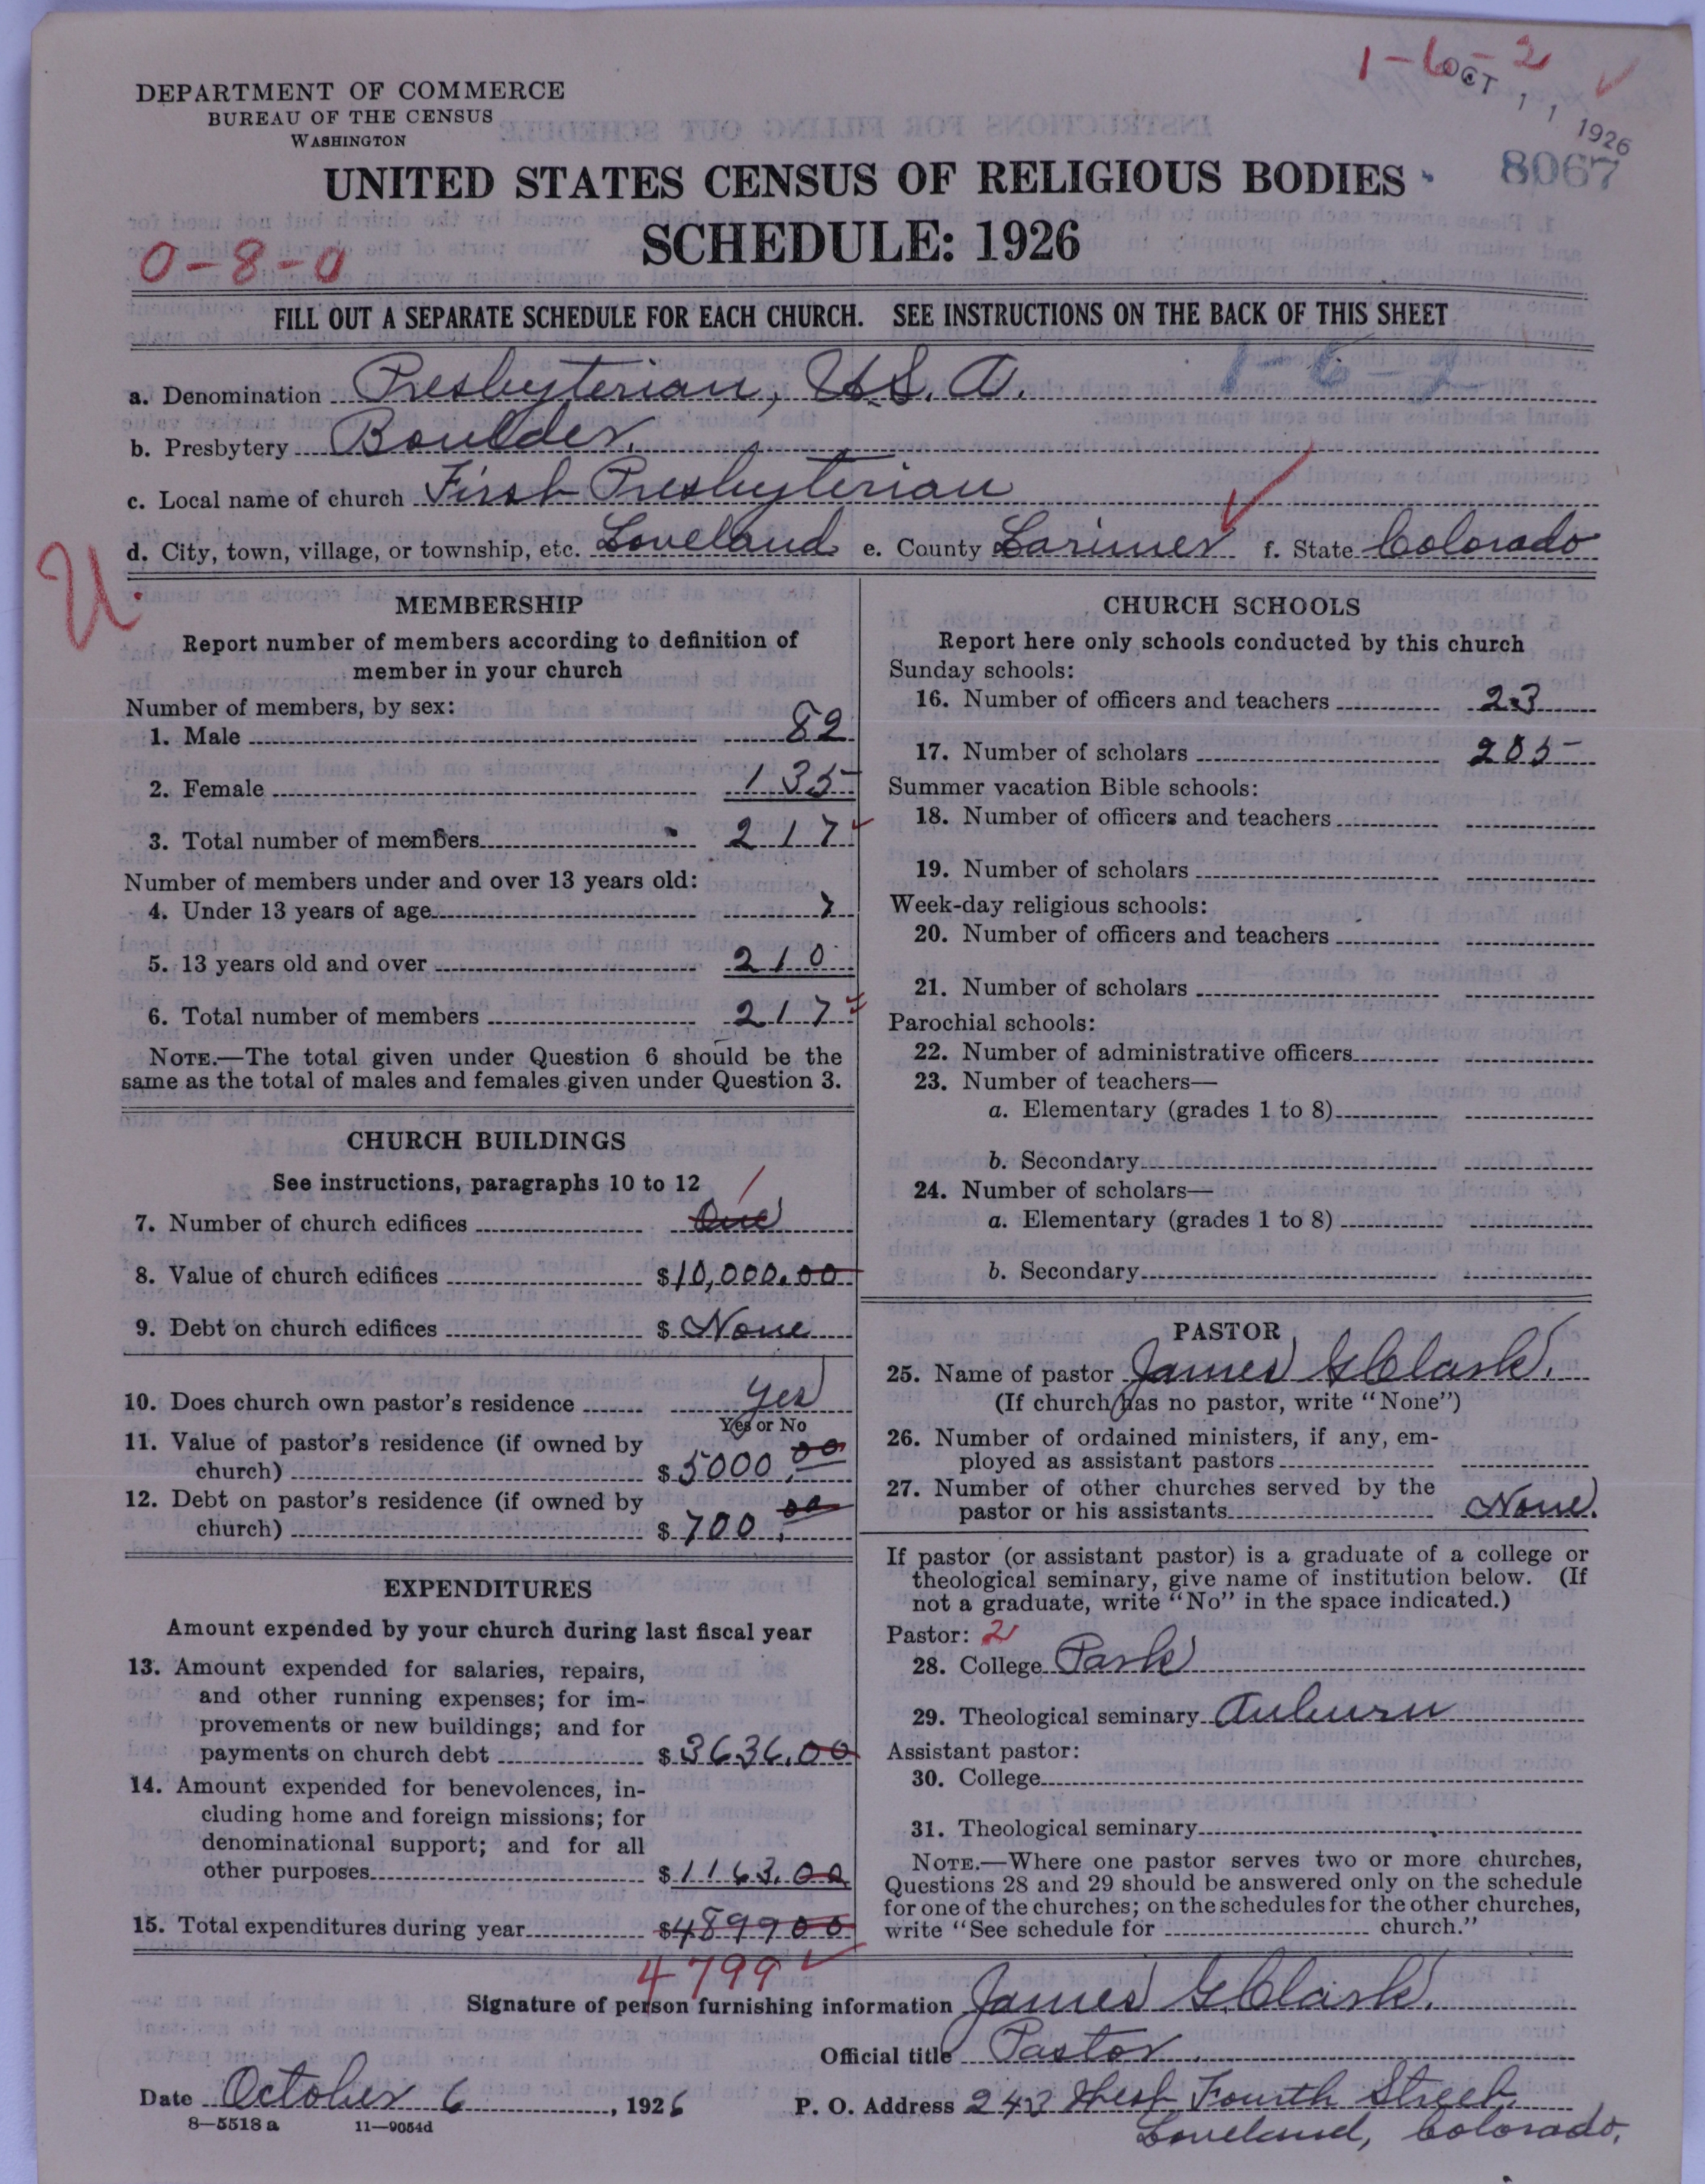 1-6-2
OCT 11 1926
8067
DEPARTMENT OF COMMERCE
BUREAU OF THE CENSUS
WASHINGTON
UNITED STATES CENSUS OF RELIGIOUS BODIES
SCHEDULE: 1926
0-8-0
FILL OUT A SEPARATE SCHEDULE FOR EACH CHURCH. SEE INSTRUCTIONS ON THE BACK OF THIS SHEET
1-6-2
a. Denomination Presbyterian, U.S.A.
b. Presbytery Boulder.
c. Local name of church First Presbyterian
d. City, town, village, or township, etc. Loveland e. County Larimer f. State Colorado
U
MEMBERSHIP
Report number of members according to definition of
member in your church
Number of members, by sex:
1. Male 82
2. Female 135
3. Total number of members 217
Number of members under and over 13 years old:
4. Under 13 years of age 7
5. 13 years old and over 210
6. Total number of members 217
NOTE.—The total given under Question 6 should be the
same as the total of males and females given under Question 3.
CHURCH BUILDINGS
See instructions, paragraphs 10 to 12
7. Number of church edifices One 1
8. Value of church edifices $10,000.00
9. Debt on church edifices $ None
10. Does church own pastor's residence Yes
Yes or No
11. Value of pastor's residence (if owned by
church) $5000.00
12. Debt on pastor's residence (if owned by
church) $700.00
EXPENDITURES
Amount expended by your church during last fiscal year
13. Amount expended for salaries, repairs,
and other running expenses; for im-
provements or new buildings; and for
payments on church debt $3636.00
14. Amount expended for benevolences, in-
cluding home and foreign missions; for
denominational support; and for all
other purposes $1163.00
15. Total expenditures during year $489900
4799
CHURCH SCHOOLS
Report here only schools conducted by this church
Sunday schools:
16. Number of officers and teachers 23
17. Number of scholars 205
Summer vacation Bible schools:
18. Number of officers and teachers
19. Number of scholars
Week-day religious schools:
20. Number of officers and teachers
21. Number of scholars
Parochial schools:
22. Number of administrative officers
23. Number of teachers—
a. Elementary (grades 1 to 8)
b. Secondary
24. Number of scholars—
a. Elementary (grades 1 to 8)
b. Secondary
PASTOR
25. Name of pastor James G Clark.
(If church has no pastor, write "None")
26. Number of ordained ministers, if any, em-
ployed as assistant pastors
27. Number of other churches served by the
pastor or his assistants None.
If pastor (or assistant pastor) is a graduate of a college or
theological seminary, give name of institution below. (If
not a graduate, write "No" in the space indicated.)
Pastor: 2
28. College Park
29. Theological seminary Auburn
Assistant pastor:
30. College
31. Theological seminary
NOTE.—Where one pastor serves two or more churches,
Questions 28 and 29 should be answered only on the schedule
for one of the churches; on the schedules for the other churches,
write "See schedule for church."
Signature of person furnishing information James G. Clark.
Official title Pastor.
Date October 6, 1926 P. O. Address 243 West Fourth Street.
Loveland, Colorado.
8—5518 a 11—9054d